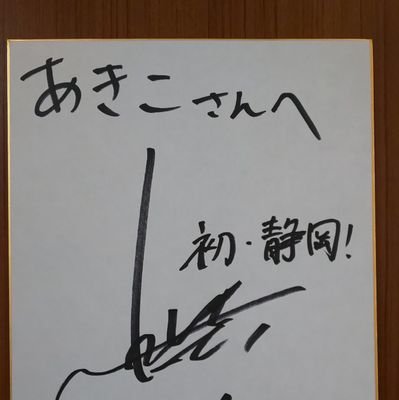 あきこさんへ
初・静岡!